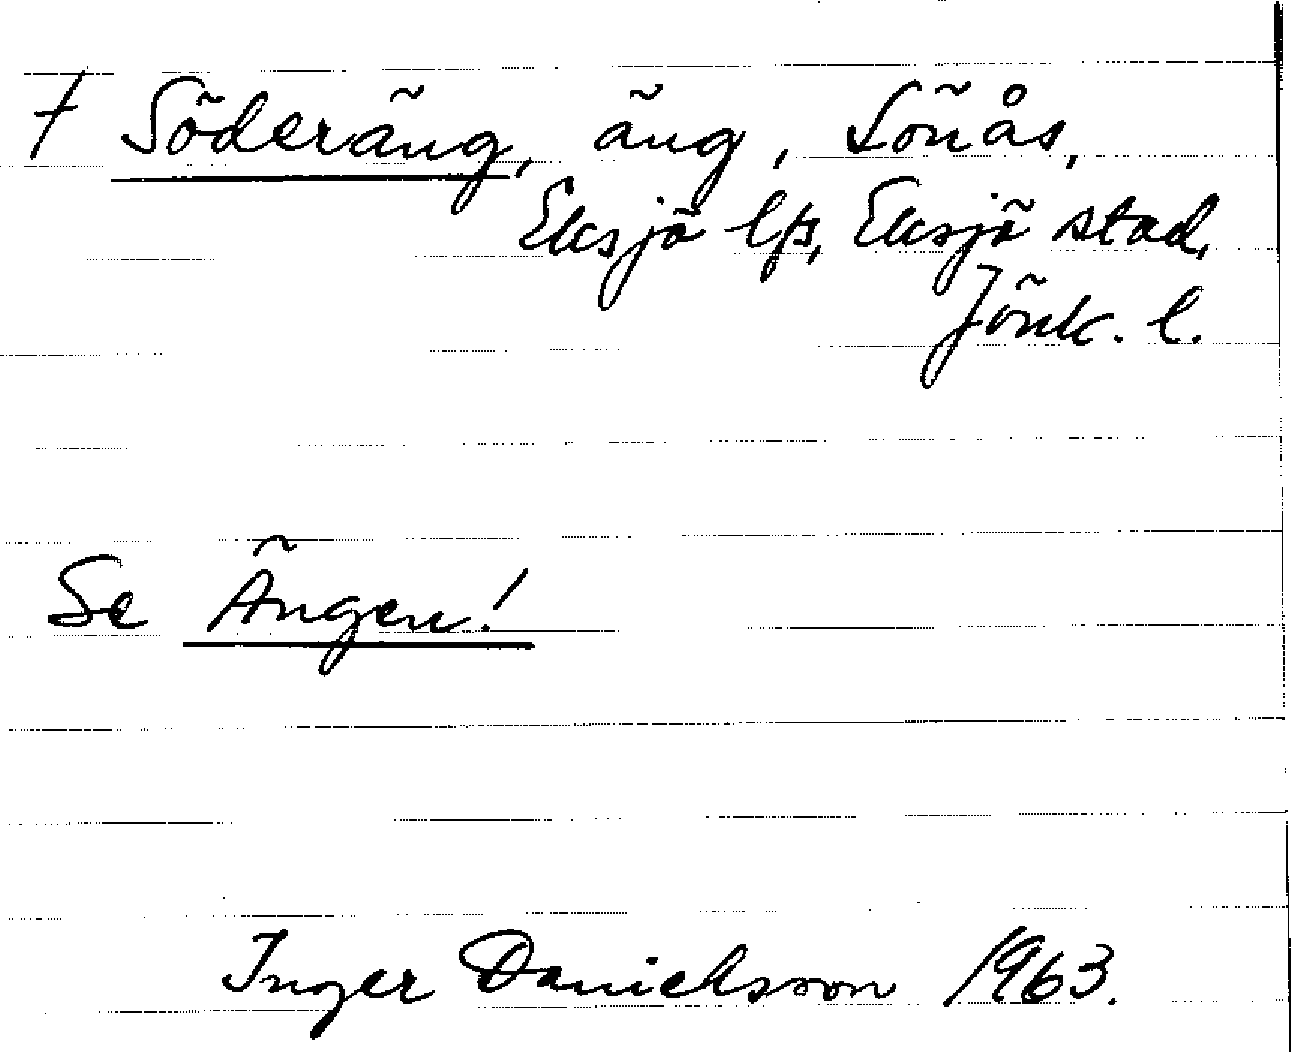 † Söderäng, äng, Lönås,
Eksjö lfs, Eksjö stad,
Jönk. l.
Se Ängen!
Inger Danielsson 1963.